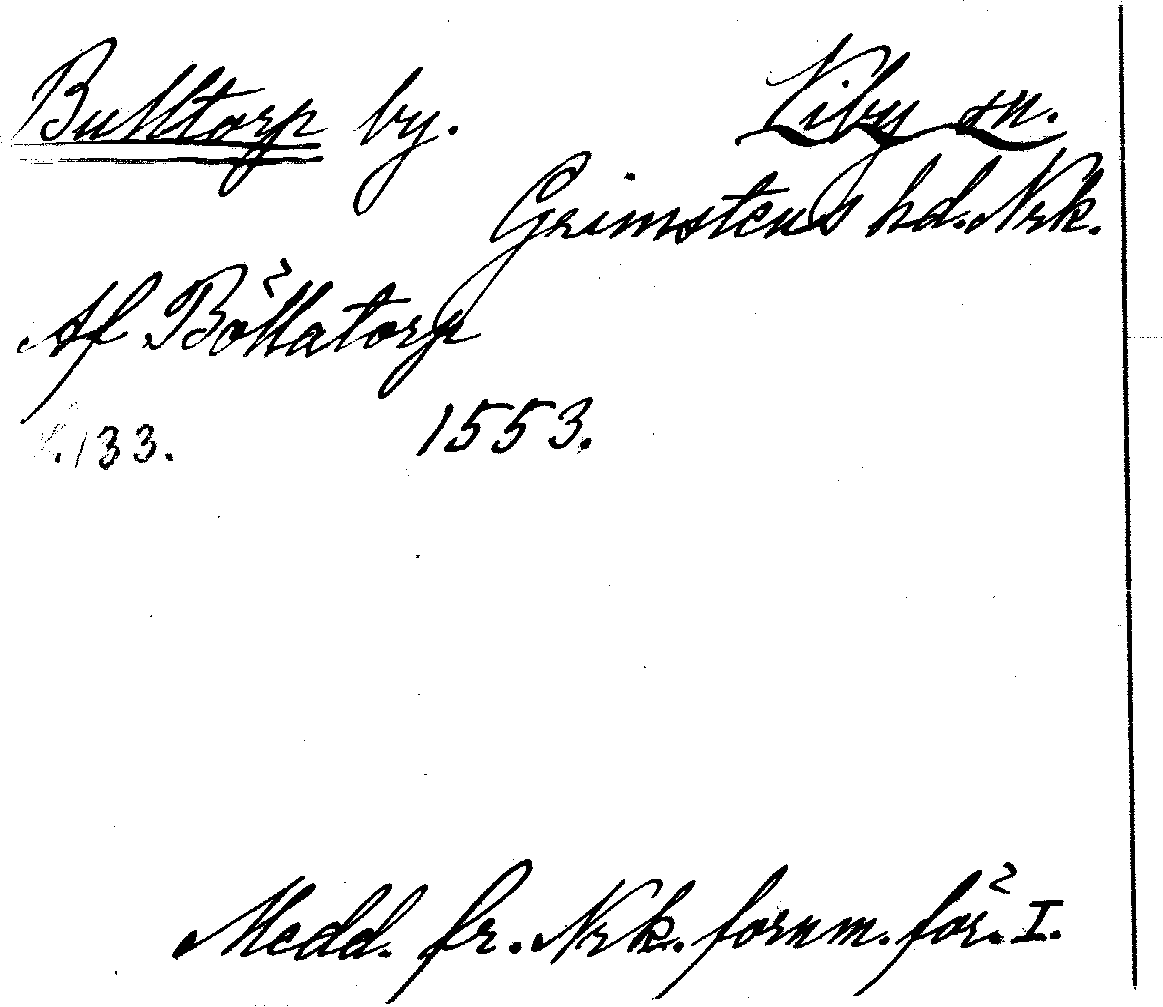 Bulltorp by. Viby sn.
Grimstens hd. Nrk.
Af Böllatorp
133. 1553.
Medd. fr. Nrk. fornm. för. I.